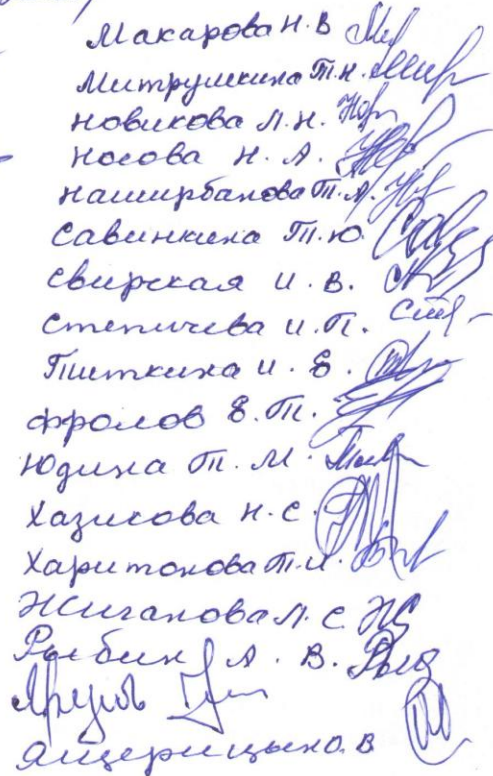 Макарова Н. В
Митрушкина Т. Н.
Новикова Л. Н.
Носова Н. А.
Наширбанова Т. А.
Савинкина Т. Ю.
Свирская И. В.
Степичева И. П.
Титкина И. Е.
Фролов Е. Т.
Юдина Т. М.
Хазикова Н. С
Харитонова Т. И.
Жиганова Л. С.
Рыбин А. В.
Ящерицын О. В